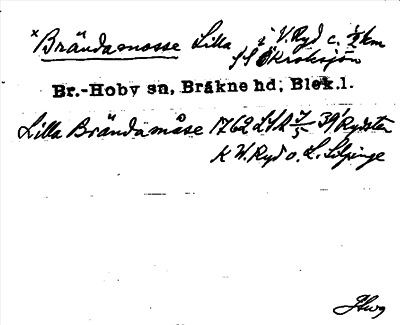 × Brändamosse Lilla i V. Ryd c. ½ km
SSÖ Kroksjön
Br.-Hoby sn, Bräkne hd, Blek.l.
Lilla Brändamåse 1762 LSA 7/5 39 Rydsten
K W. Ryd o. L. Silpinge